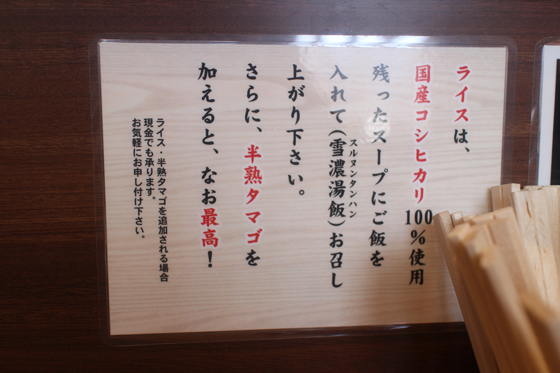 ライスは、
国産コシヒカリ100%使用
残ったスープにご飯を
入れて(雪濃湯飯)お召し
スルヌンタンハン
上がり下さい。
さらに、半熟タマゴを
加えると、なお最高!
ライス・半熟タマゴを追加される場合
現金でも承ります。
お気軽にお申し付け下さい。